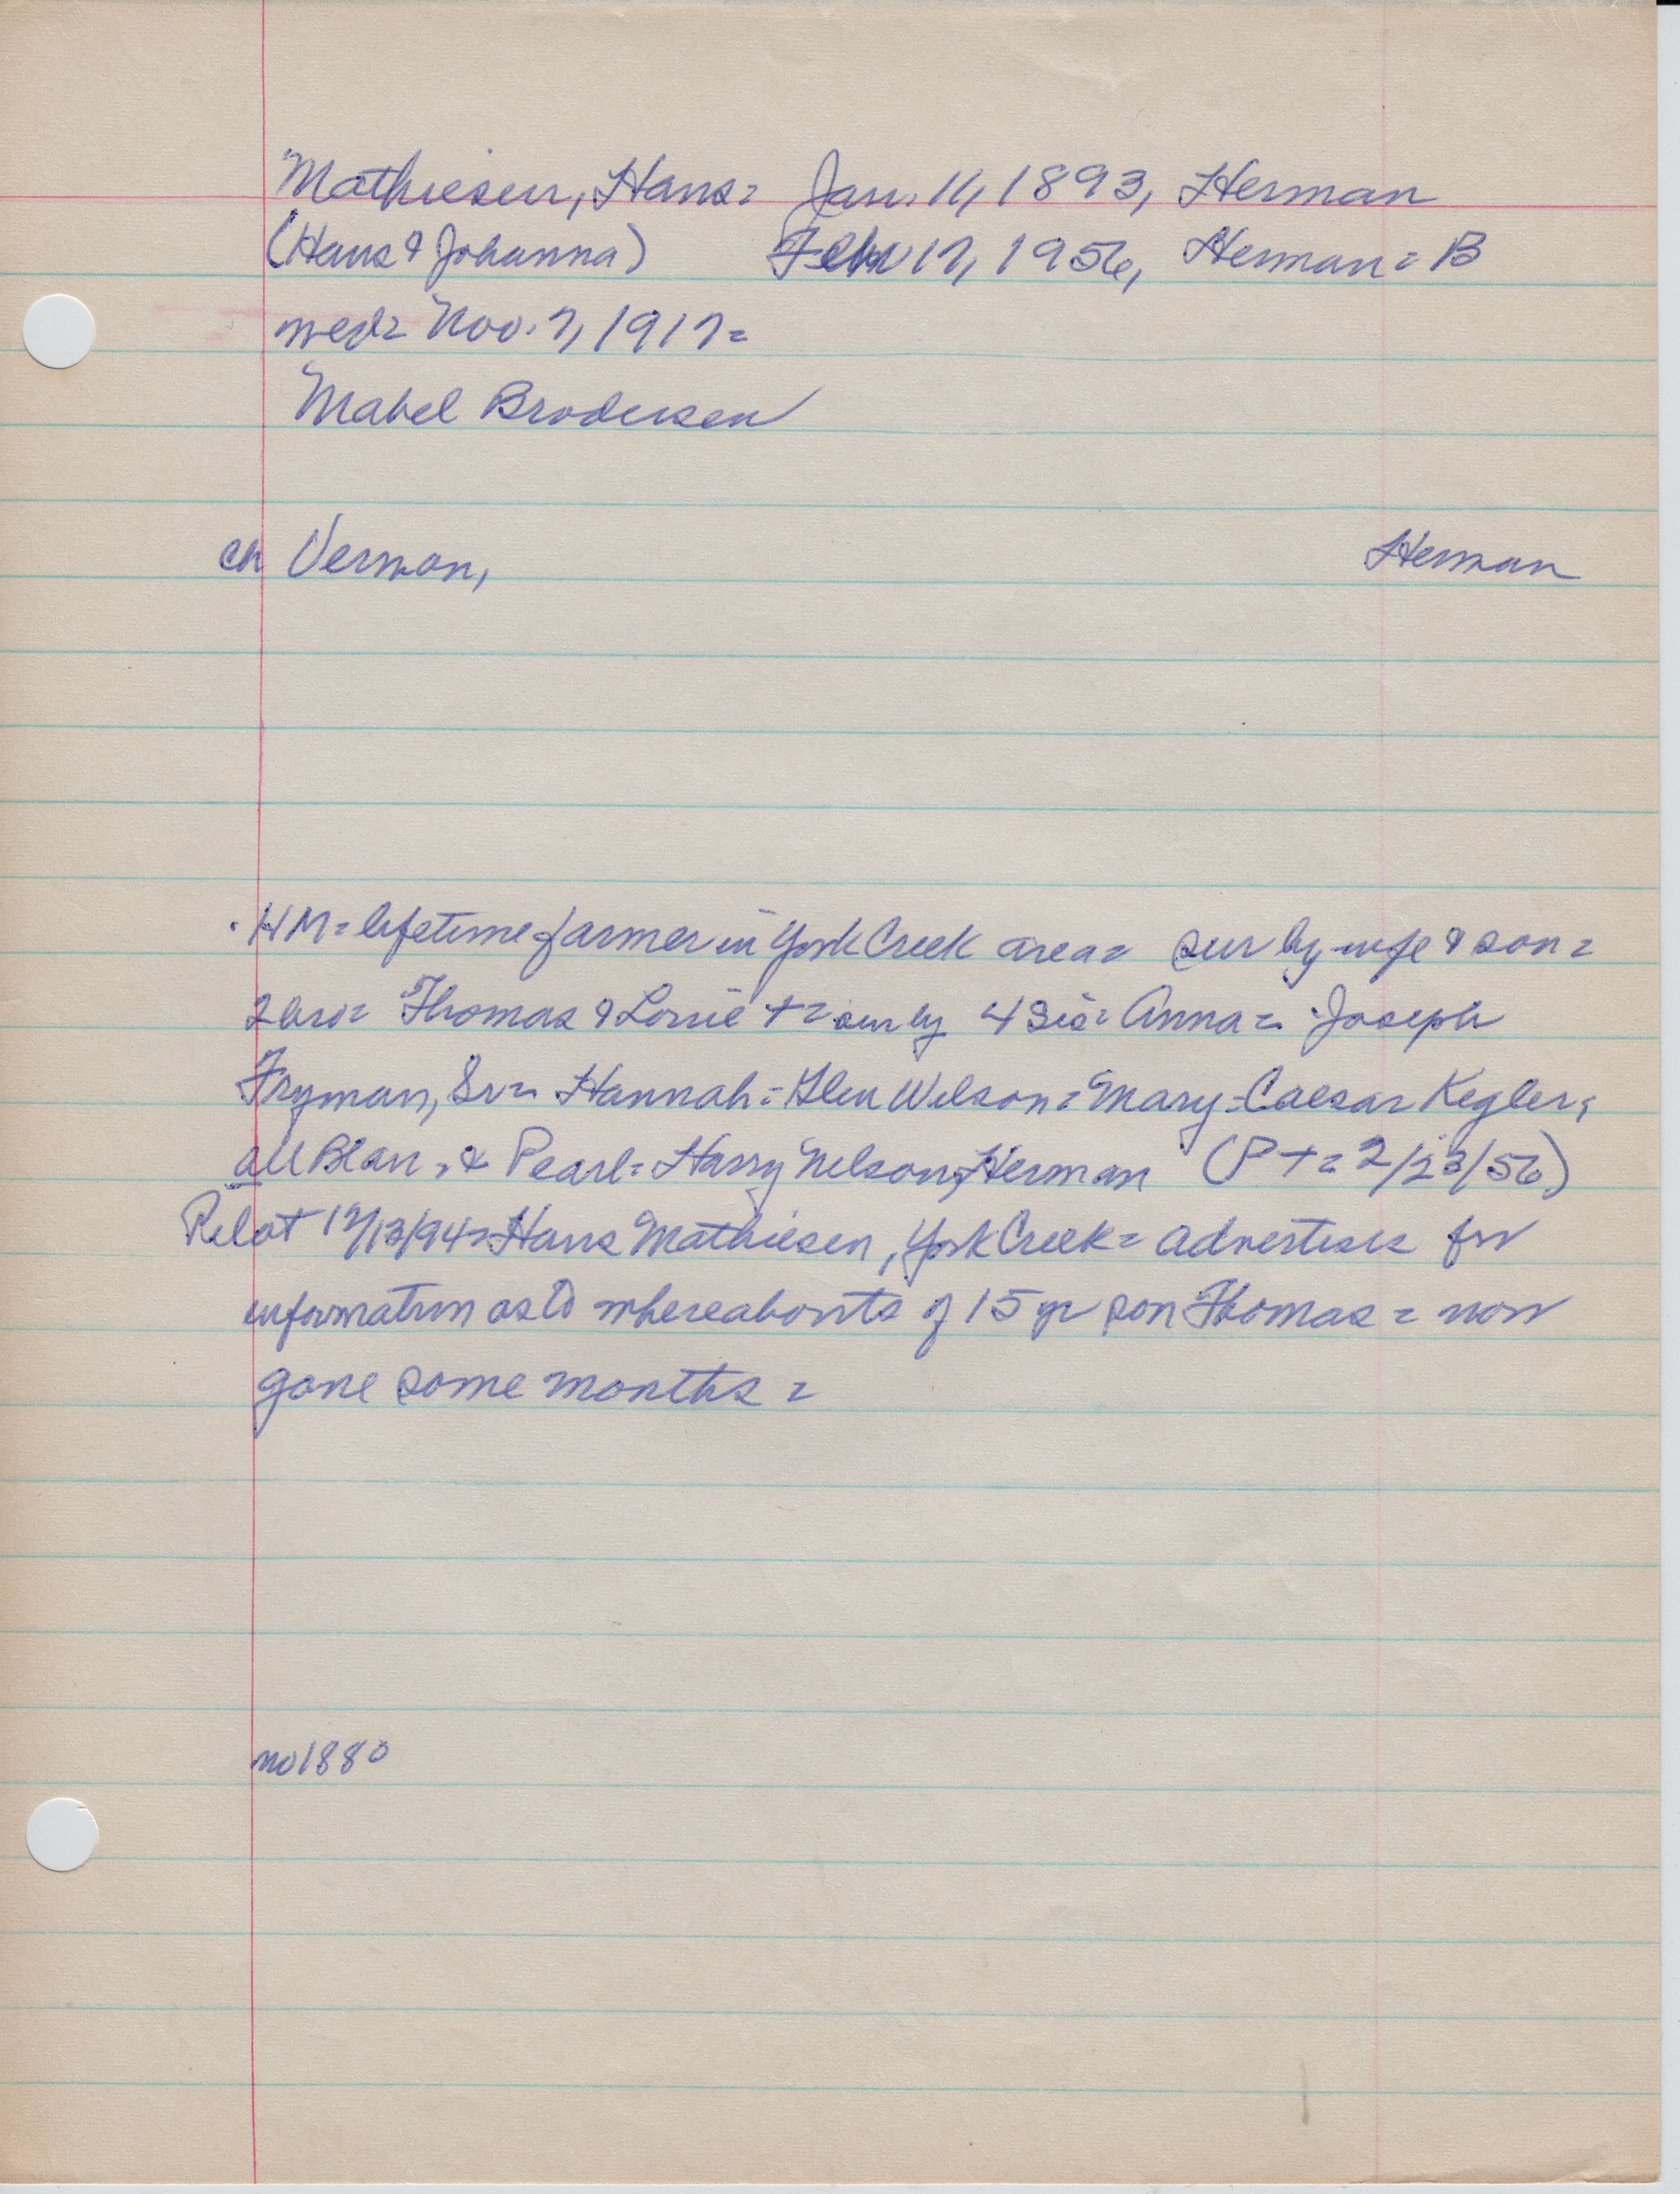 Mathiesen, Hans = Jan. 11, 1893, Herman
(Hans & Johanna) Feb 17, 1956, Herman = B
wed = Nov. 7, 1917 =
Mabel Brodersen
ch Vernon, Herman
HM = lifetime farmer in York Creek area = sur by wife & son =
2 bro = Thomas & Louie + = sur by 4 sis = Anna = Joseph
Fryman, Sr = Hannah = Glen Wilson = Mary = Caesar Kegler,
all Blair, & Pearl = Harry Nelson, Herman (P + = 2/23/56)
Pilot 12/13/94 = Hans Mathiesen, York Creek = advertises for
information as to whereabouts of 15 yr son Thomas = now
gone some months =
no 1880